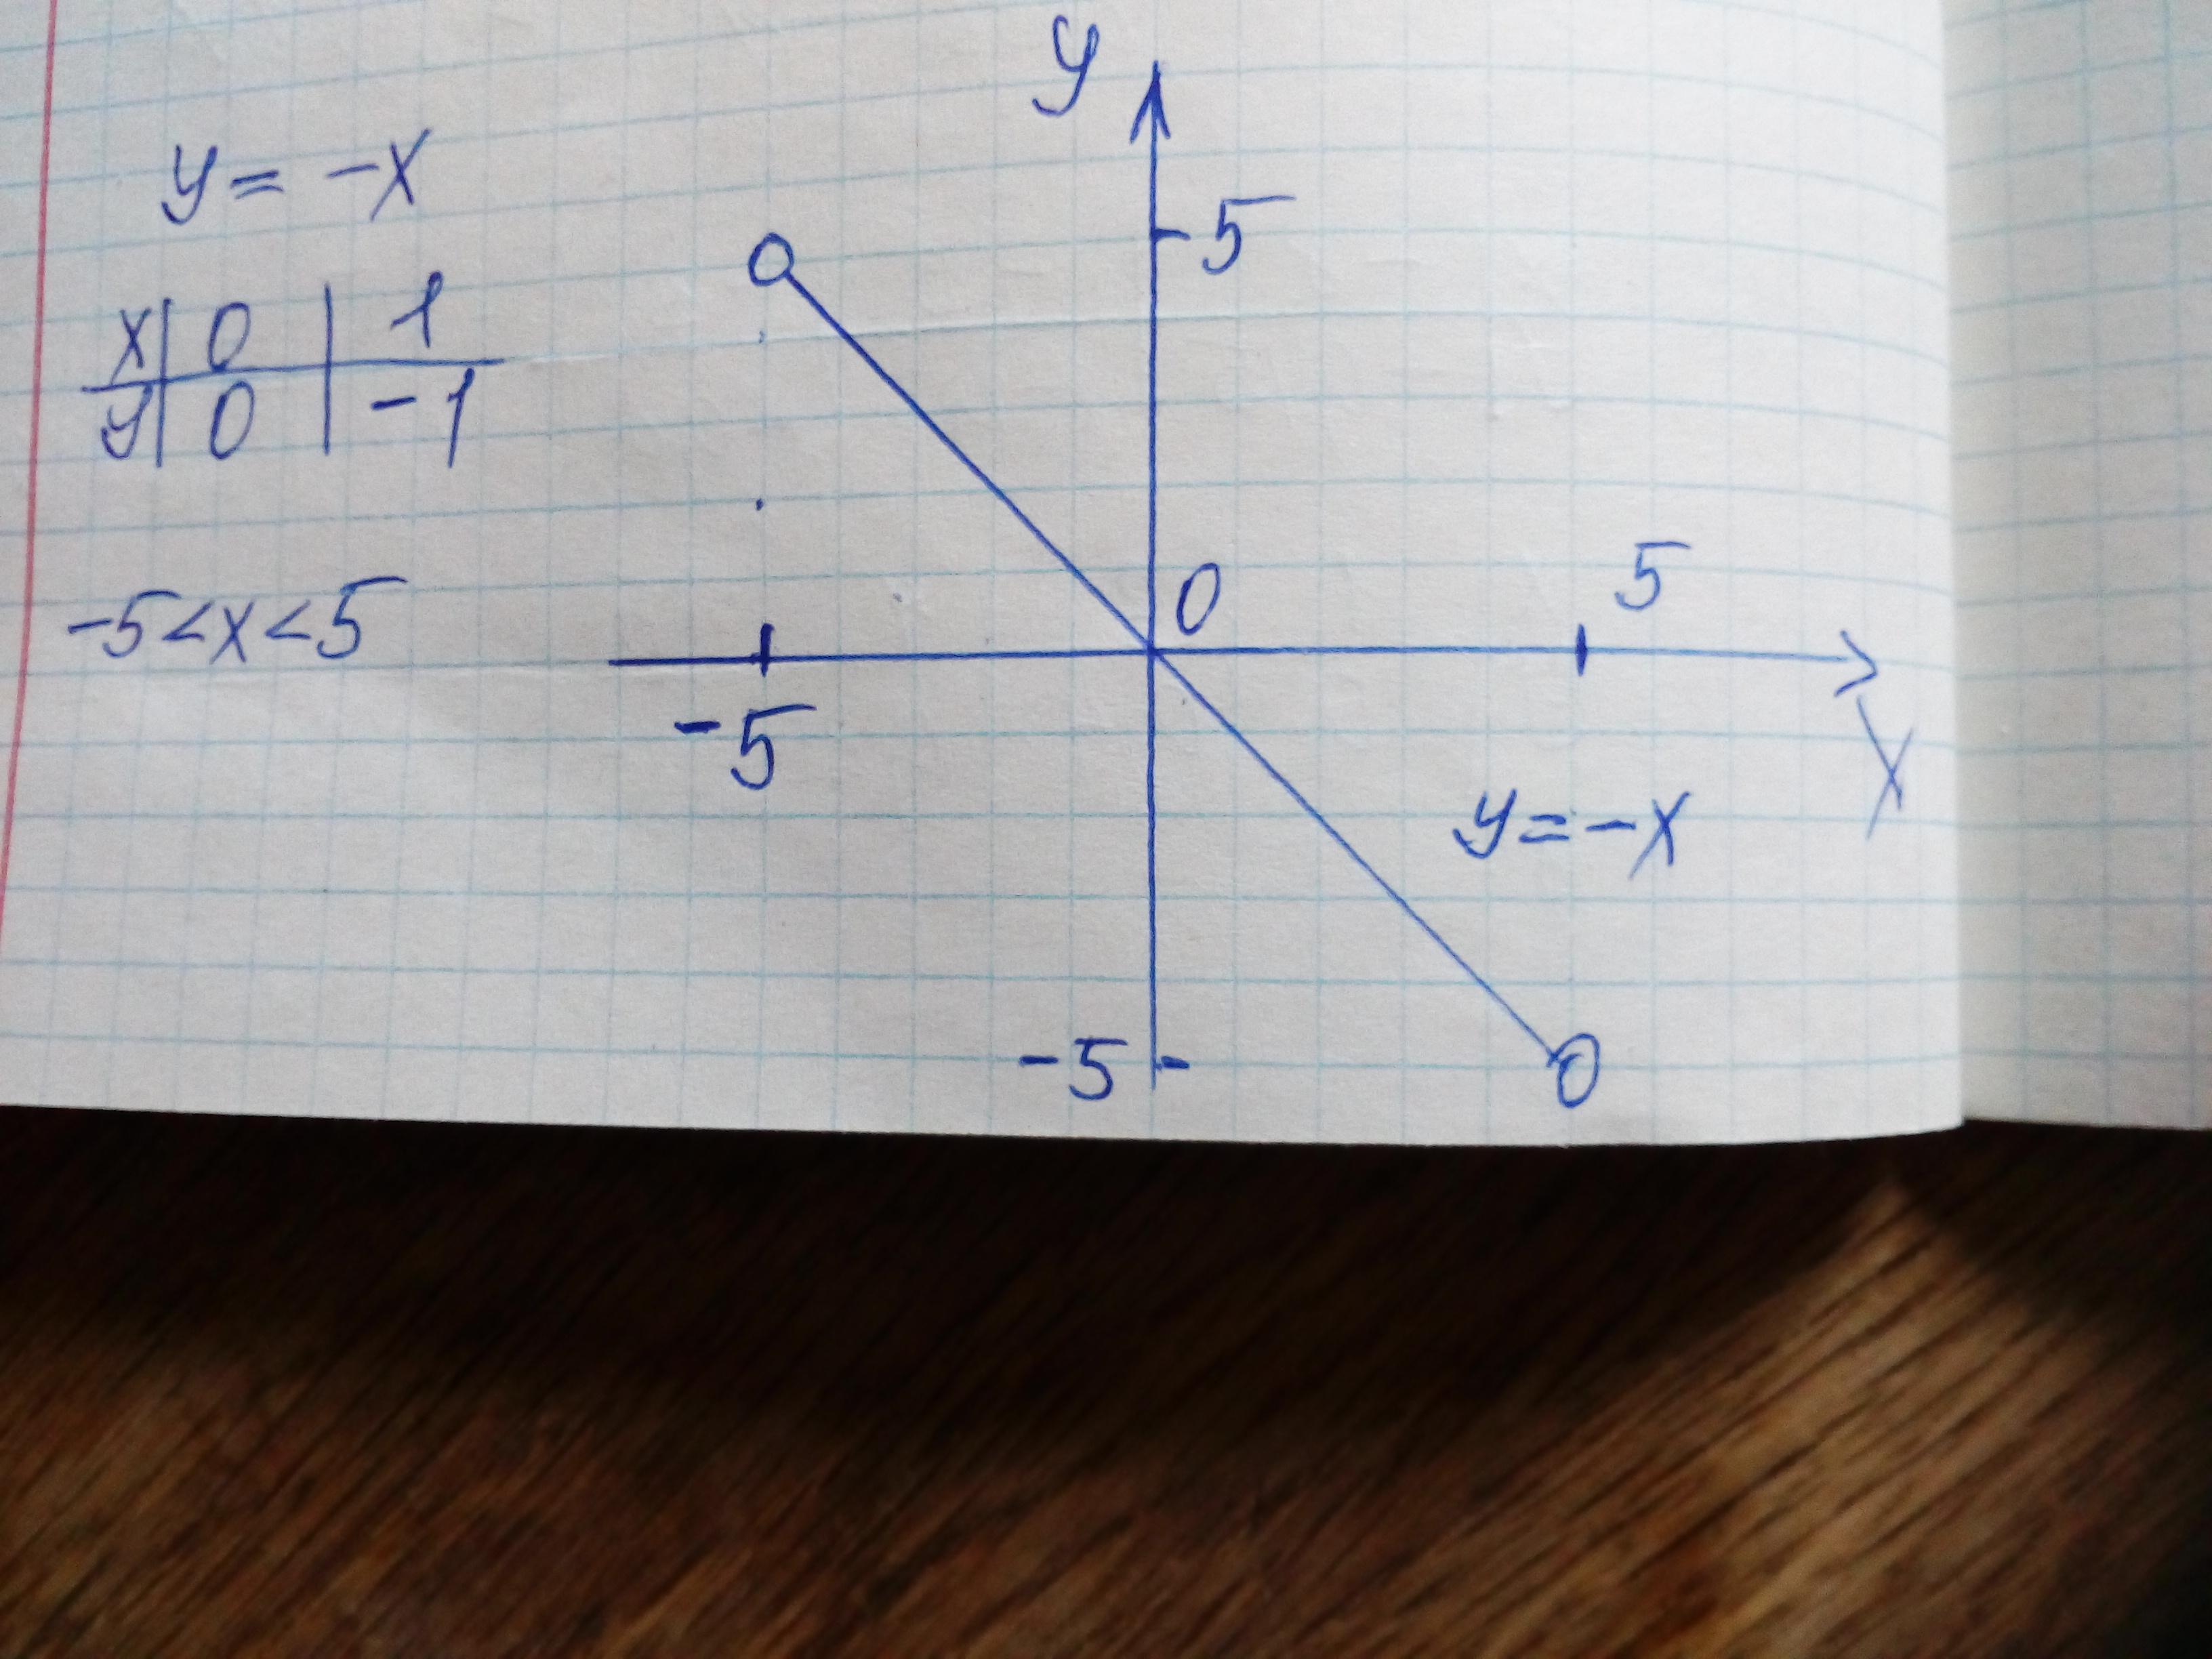 y = -x
x | 0 | 1
y | 0 | -1
-5 < x < 5
y
5
0
5
-5
x
y = -x
-5